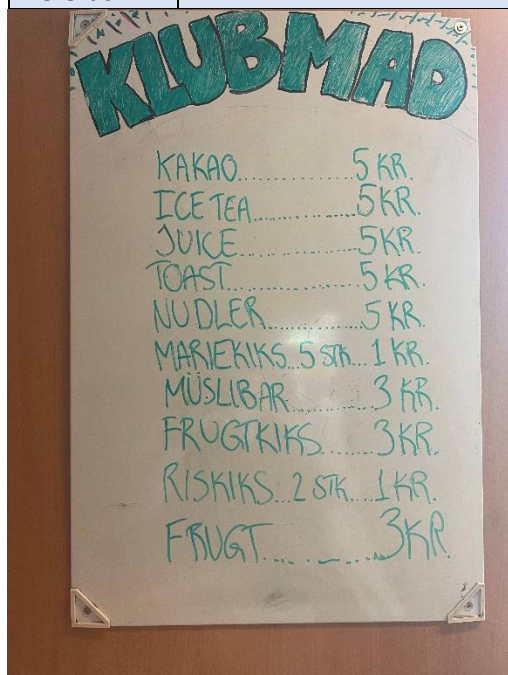 KLUBMAD
KAKAO..............5 KR.
ICE TEA..............5 KR.
JUICE..............5 KR.
TOAST..............5 KR.
NUDLER..............5 KR.
MARIEKIKS..5 STK...1 KR.
MÜSLIBAR...........3 KR.
FRUGTKIKS........3 KR.
RISKIKS...2 STK....1 KR.
FRUGT...........3 KR.